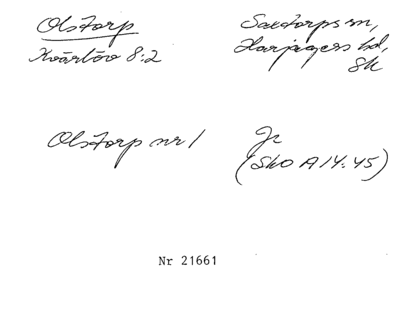 Olstorp
Kvärlöv 8:2
Saxtorps sn,
Harjagers hd,
Sk
Olstorp nr 1
Jr
(SkO A14:45)
Nr 21661